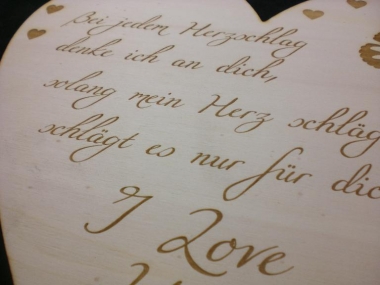 Bei jedem Herzschlag
denke ich an dich,
solang mein Herz schläg
schlägt es nur für dic
I Love